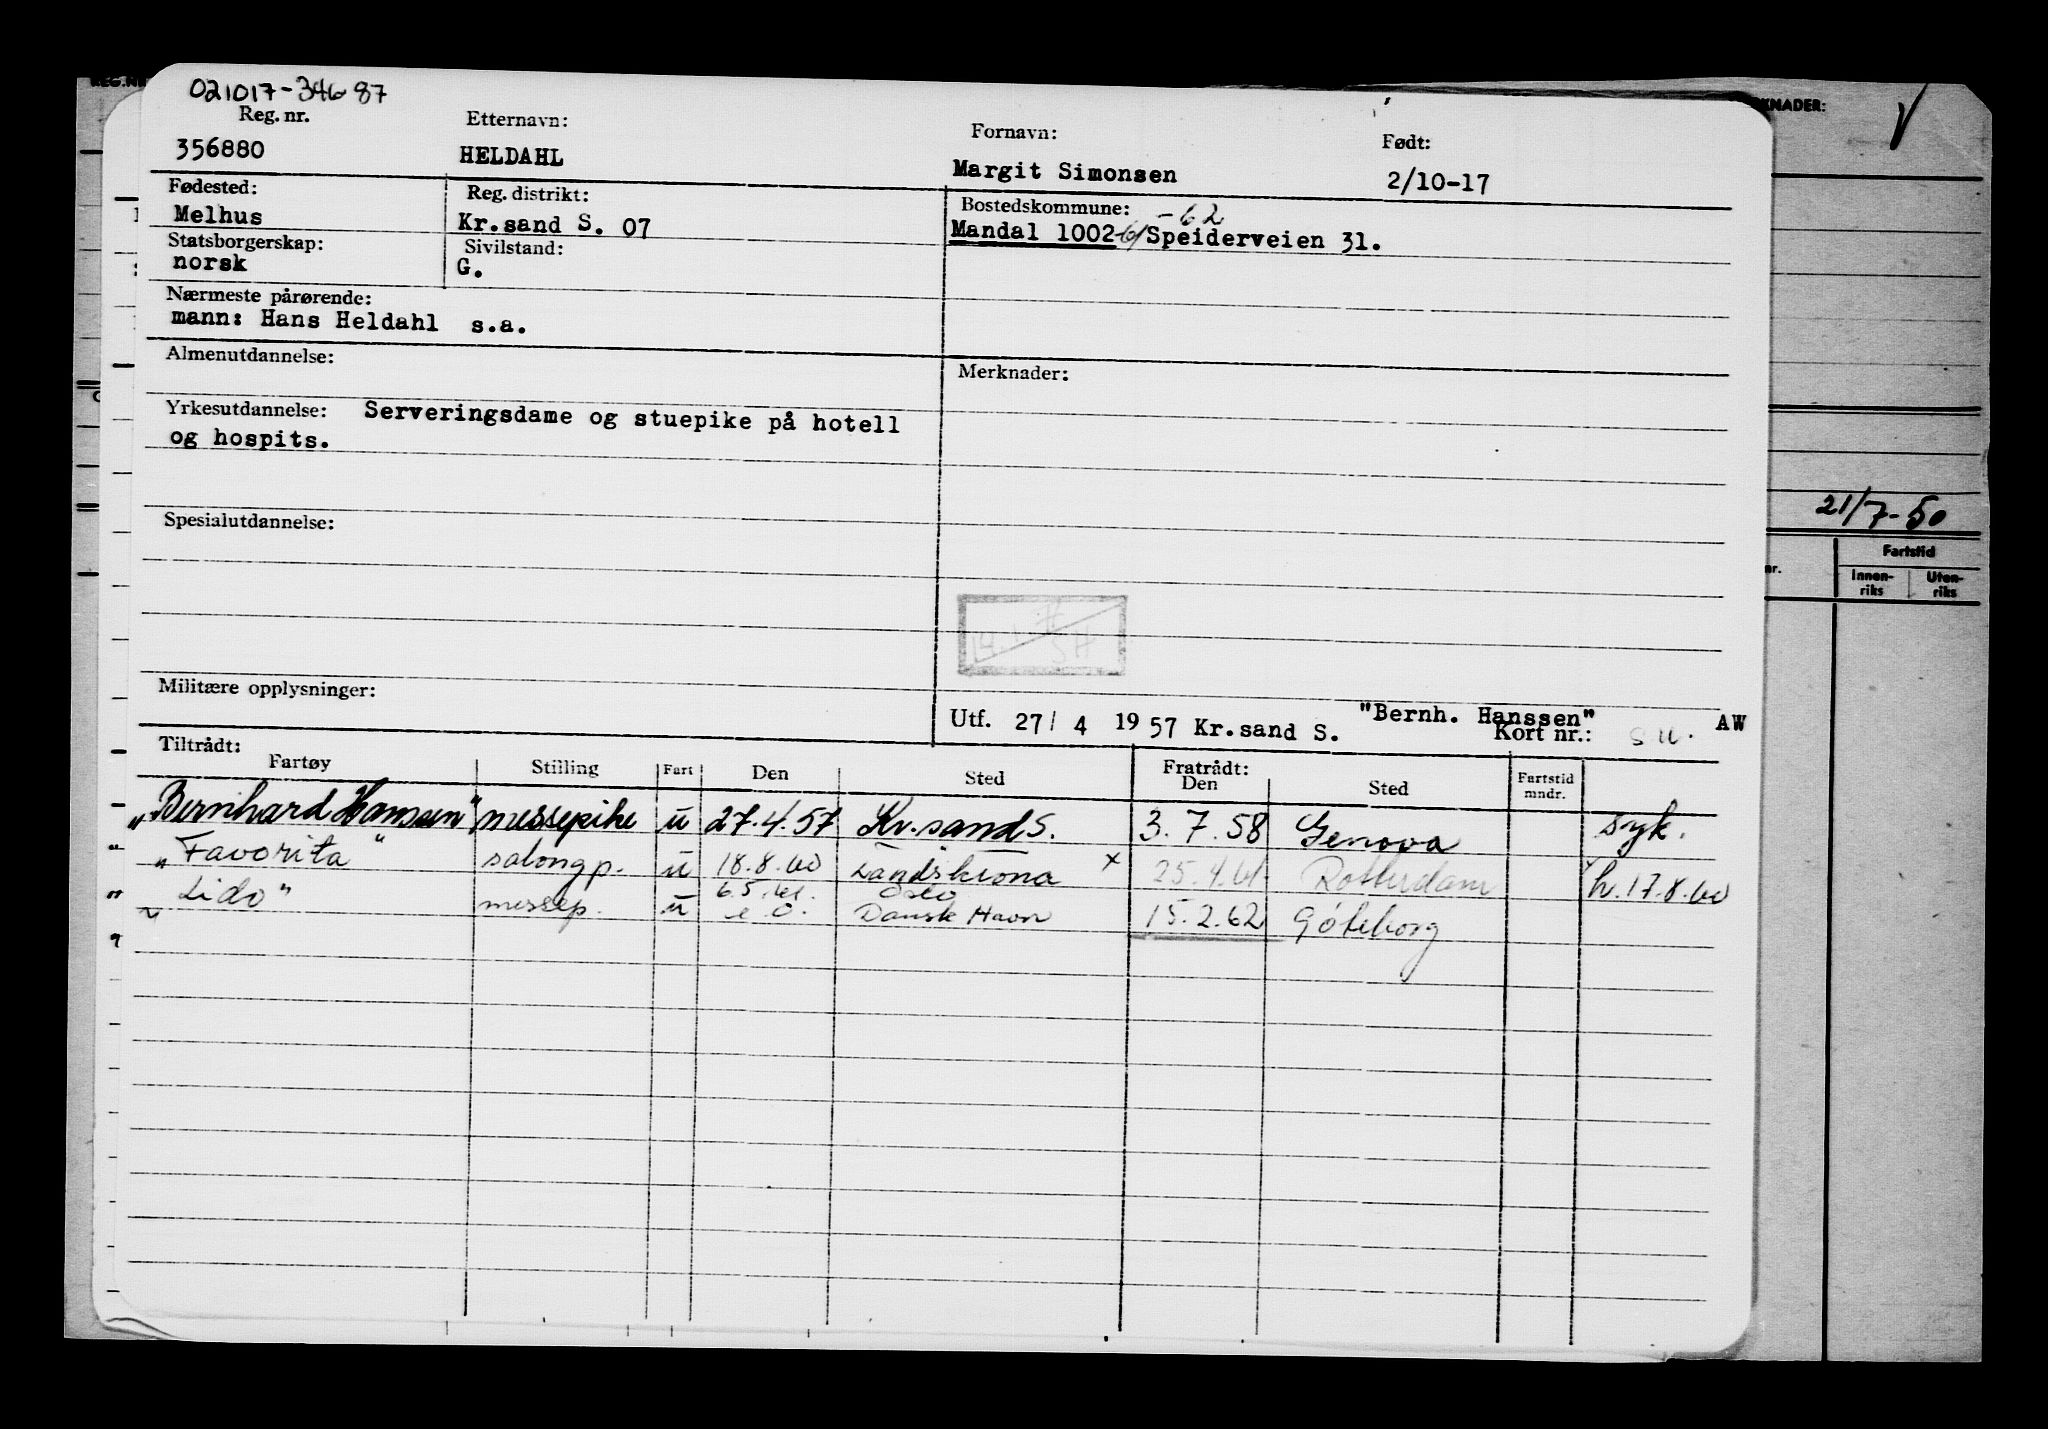 REG.NR
KNADER:
021017-34687
Reg. nr. Etternavn: Fornavn: Født:
356880 HELDAHL Margit Simonsen 2/10-17
Fødested: Reg. distrikt: Bostedskommune: -62
Melhus Kr.sand S. 07 Mandal 1002 Speiderveien 31.
Statsborgerskap: Sivilstand:
norsk G.
Nærmeste pårørende:
mann: Hans Heldahl s.a.
Almenutdannelse: Merknader:
Yrkesutdannelse: Serveringsdame og stuepike på hotell
og hospits.
21/7-50
Spesialutdannelse:
Fartstid
nr. Innen-riks Uten-riks
Militære opplysninger:
Utf. 27/ 4 19 57 Kr.sand S. "Bernh. Hanssen" AW
Kort nr.:
Tiltrådt: Fratrådt:
Fartøy Stilling Fart Den Sted Den Sted Fartstid mndr.
"Bernhard Hanssen" messepike u 27.4.57 Kr.sand S. 3.7.58 Genova syk.
"Favorita" salongp. u 18.8.60 Landskrona x 25.4.61 Rotterdam h.17.8.60
"Lido" messep. u 6.5.61. Oslo
e.o. Dansk Havn 15.2.62 Göteborg